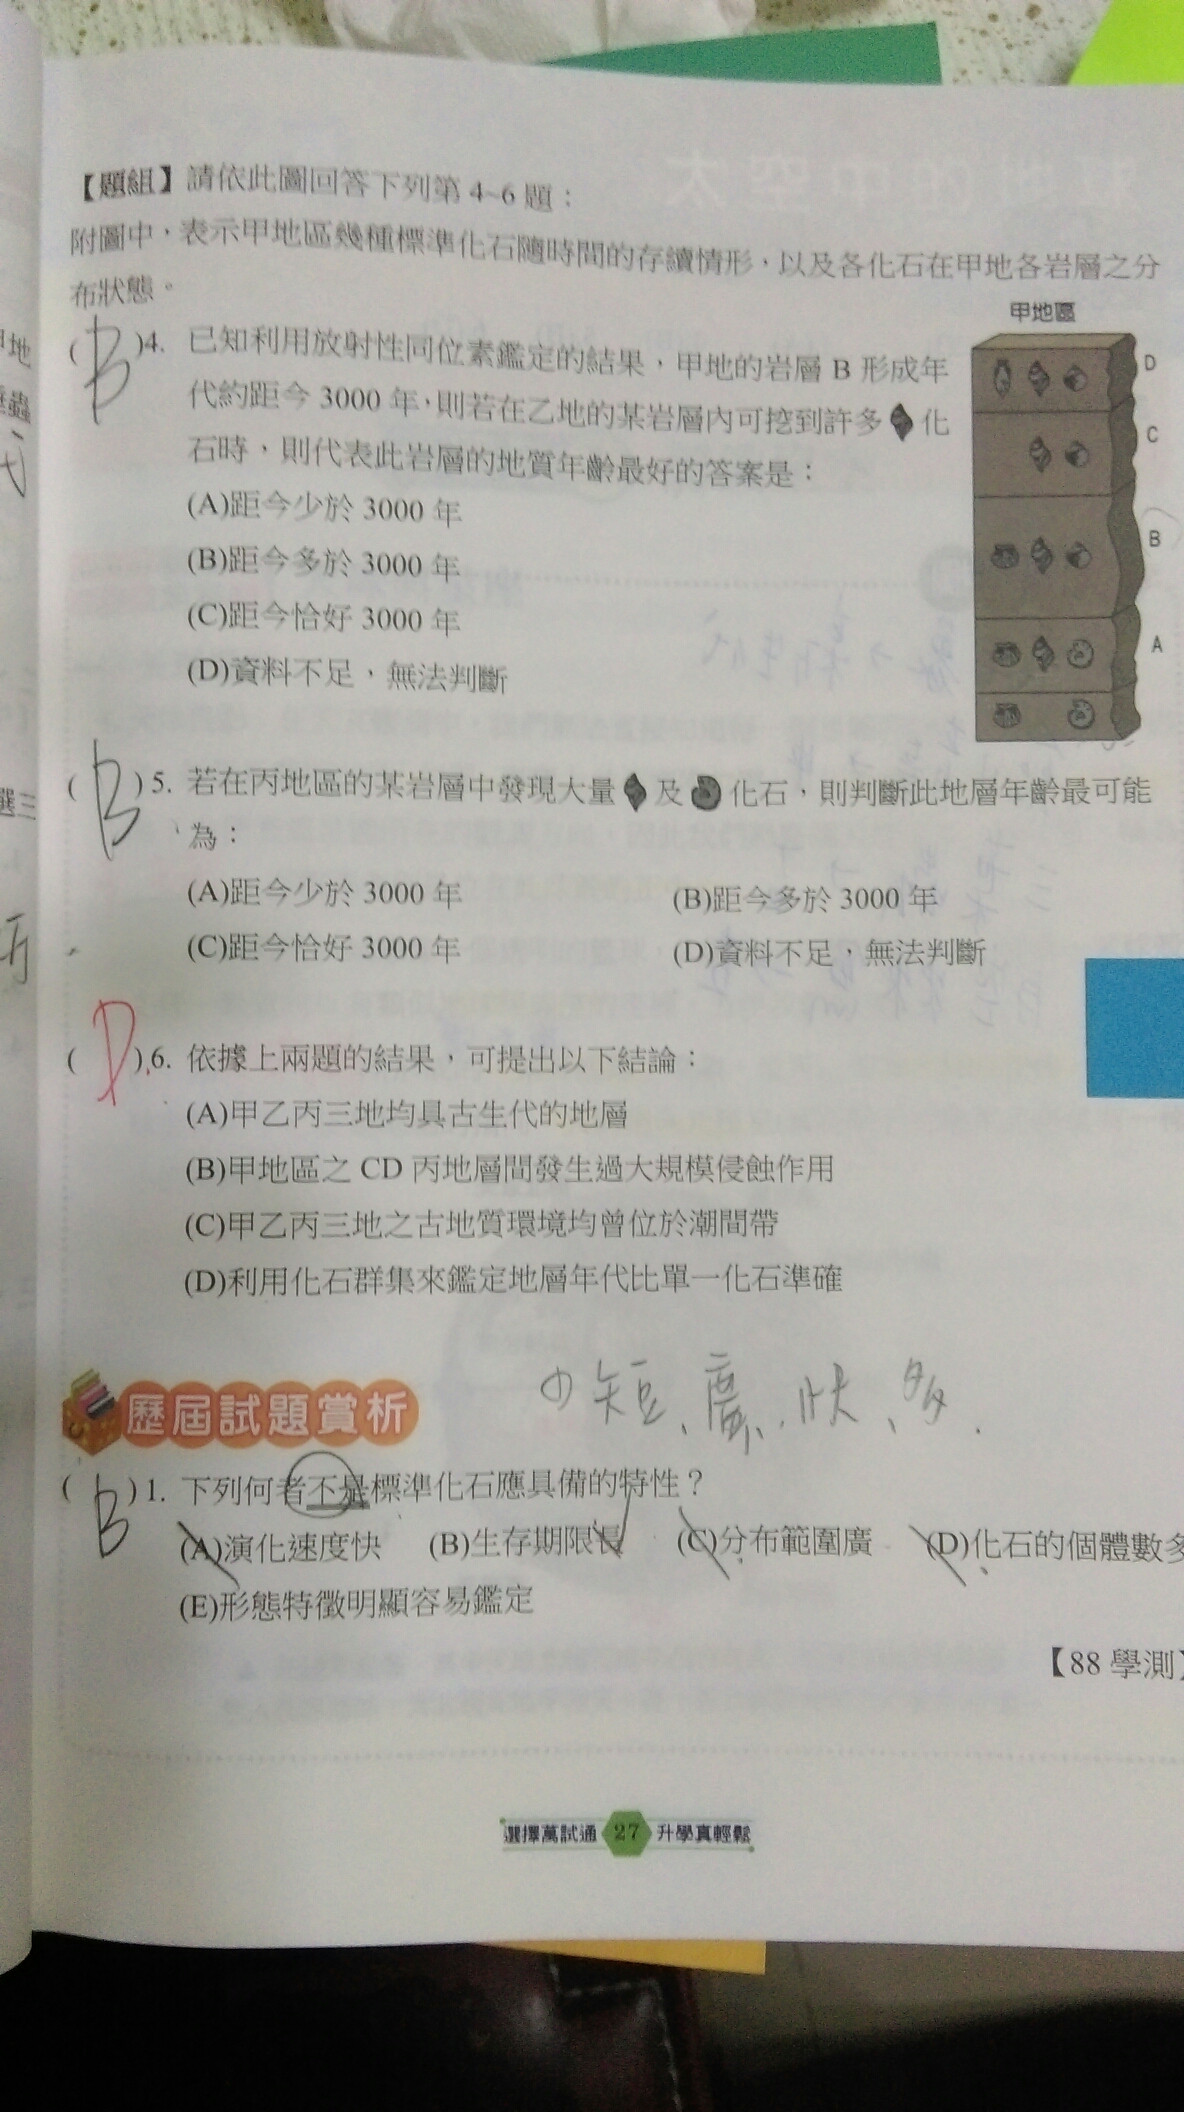 【題組】請依此圖回答下列第 4~6 題：
附圖中，表示甲地區幾種標準化石隨時間的存續情形，以及各化石在甲地各岩層之分
布狀態。
甲地區
D
C
B
A
( B )4. 已知利用放射性同位素鑑定的結果，甲地的岩層 B 形成年
代約距今 3000 年，則若在乙地的某岩層內可挖到許多 化
石時，則代表此岩層的地質年齡最好的答案是：
(A)距今少於 3000 年
(B)距今多於 3000 年
(C)距今恰好 3000 年
(D)資料不足，無法判斷
( B )5. 若在丙地區的某岩層中發現大量 及 化石，則判斷此地層年齡最可能
為：
(A)距今少於 3000 年 (B)距今多於 3000 年
(C)距今恰好 3000 年 (D)資料不足，無法判斷
( D )6. 依據上兩題的結果，可提出以下結論：
(A)甲乙丙三地均具古生代的地層
(B)甲地區之 CD 丙地層間發生過大規模侵蝕作用
(C)甲乙丙三地之古地質環境均曾位於潮間帶
(D)利用化石群集來鑑定地層年代比單一化石準確
短、廣、快、多.
歷屆試題賞析
( B )1. 下列何者不是標準化石應具備的特性？
(A)演化速度快 (B)生存期限長 (C)分布範圍廣 (D)化石的個體數多
(E)形態特徵明顯容易鑑定
【88 學測】
選擇萬試通 27 升學真輕鬆